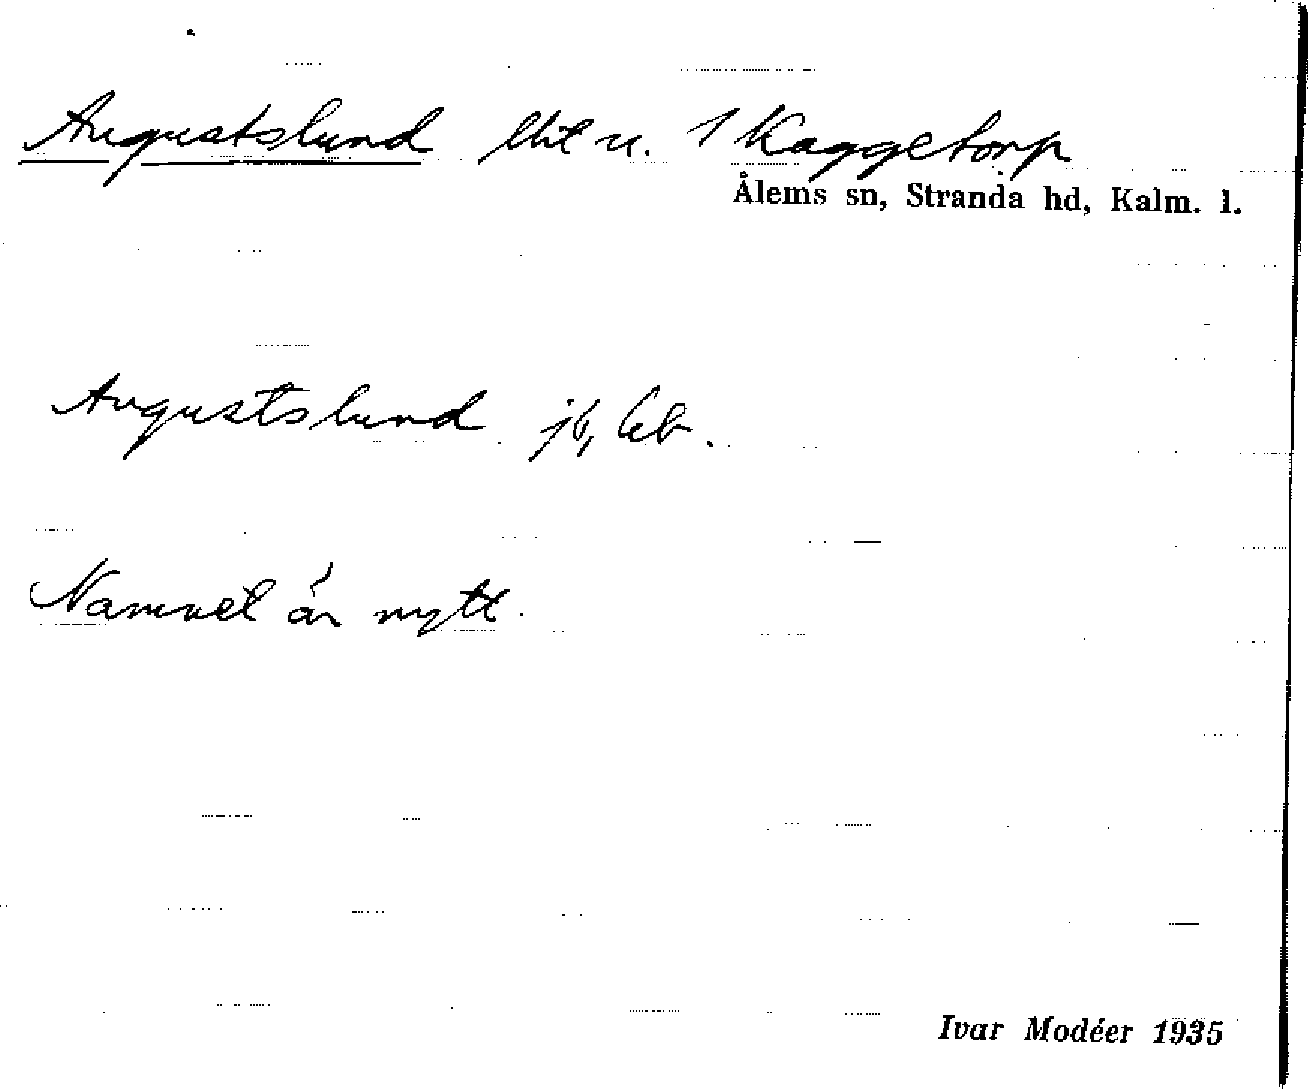 Augustslund lht u. 1 Kaggetorp
Ålems sn, Stranda hd, Kalm. l.
Augustslund jb,
Namnet är nytt.
Ivar Modéer 1935